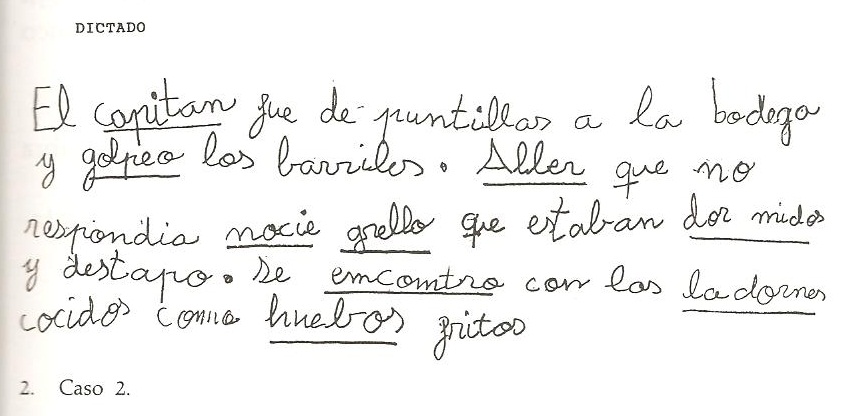 DICTADO
El capitan fue de puntillas a la bodega
y golpeo los barriles. Aller que no
respondia nocie grello que estaban dor midos
y destapo. se emcomtro con los ladornes
cocidos como huebos fritos
2. Caso 2.